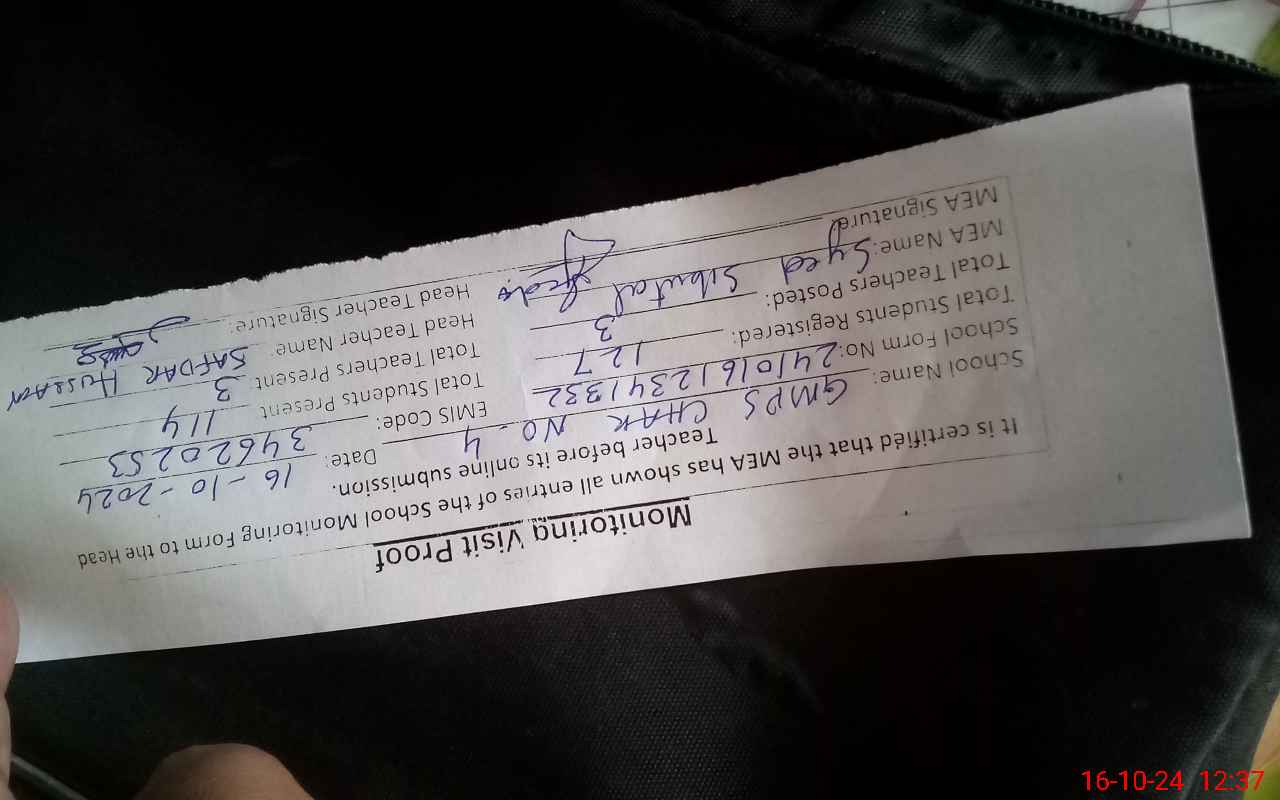 Monitoring Visit Proof
It is certified that the MEA has shown all entries of the School Monitoring Form to the Head
Teacher before its online submission.
School Name: GMPS CHAK NO-4 Date: 16-10-2024
School Form No: 24101612341332 EMIS Code: 34620253
Total Students Registered: 127 Total Students Present 114
Total Teachers Posted: 3 Total Teachers Present 3
MEA Name: Syed Sibutal Head Teacher Name SAFDAR HUSSAIN
MEA Signature Head Teacher Signature:
16-10-24 12:37